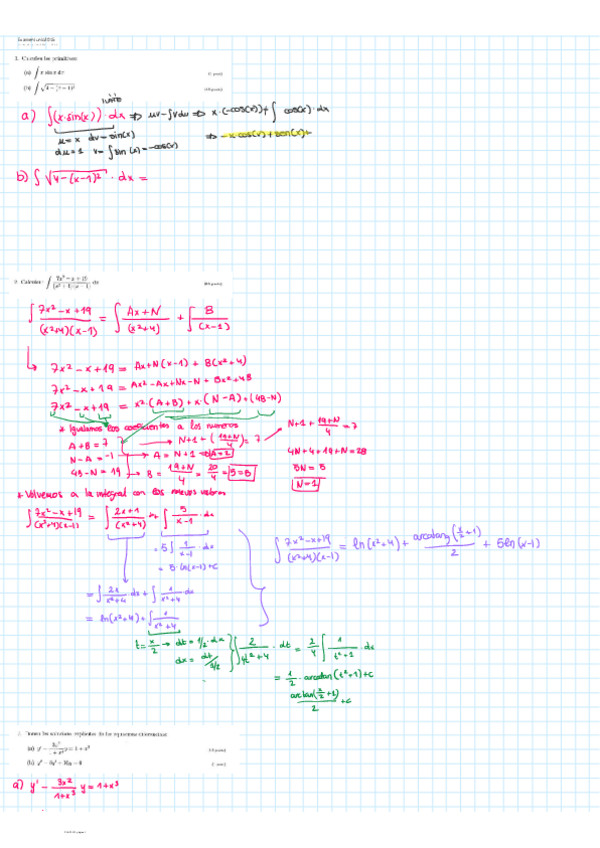 1. Calcular las primitivas:
(a) ∫ x sin x dx
(b) ∫ √(4 − (x − 1)²)
a) ∫(x·sin(x))·dx ⇒ uv − ∫vdu ⇒ x·(−cos(x)) + ∫ cos(x)·dx
u = x dv = sin(x) ⇒ −x cos(x) + sen(x) +
du = 1 v = ∫sin(x) = −cos(x)
b) ∫ √(4−(x−1)²) · dx =
2. Calcular: ∫ (7x² − x + 19)/((x² + 4)(x − 1)) dx
∫ (7x² − x + 19)/((x²+4)(x−1)) = ∫ (Ax+N)/(x²+4) + ∫ B/(x−1)
7x² − x + 19 = Ax+N(x−1) + B(x²+4)
7x² − x + 19 = Ax² − Ax + Nx − N + Bx² + 4B
7x² − x + 19 = x²·(A+B) + x·(N−A) + (4B−N)
* Igualamos los coeficientes a los numeros
A+B = 7 → N+1 + ((19+N)/4) = 7
N−A = −1 → A = N+1 ⇒ A=2
4B−N = 19 → B = (19+N)/4 = 20/4 = 5 = B
N+1 + (19+N)/4 = 7
4N+4+19+N = 28
5N = 5
N=1
* Volvemos a la integral con los nuevos valores
∫ (7x²−x+19)/((x²+4)(x−1)) = ∫ (2x+1)/(x²+4) dx + ∫ 5/(x−1) · dx
= 5∫ 1/(x−1) · dx
= 5·ln(x−1)+C
∫ (7x²−x+19)/((x²+4)(x−1)) = ln(x²+4) + arcotang(x/2+1)/2 + 5ln(x−1)
= ∫ 2x/(x²+4) dx + ∫ 1/(x²+4) dx
= ln(x²+4) + ∫ 1/(x²+4)
t = x/2 → dt = 1/2·dx
dx = dt/(1/2)
∫ 2/(4t²+4) · dt = 2/4 ∫ 1/(t²+1) · dx
= 1/2 · arcotan(t²+1)+c
arctan(x/2+1)/2 + c
(a) y′ − 3x²/(1 + x³) y = 1 + x³
a) y′ − 3x²/(1+x³) y = 1+x³